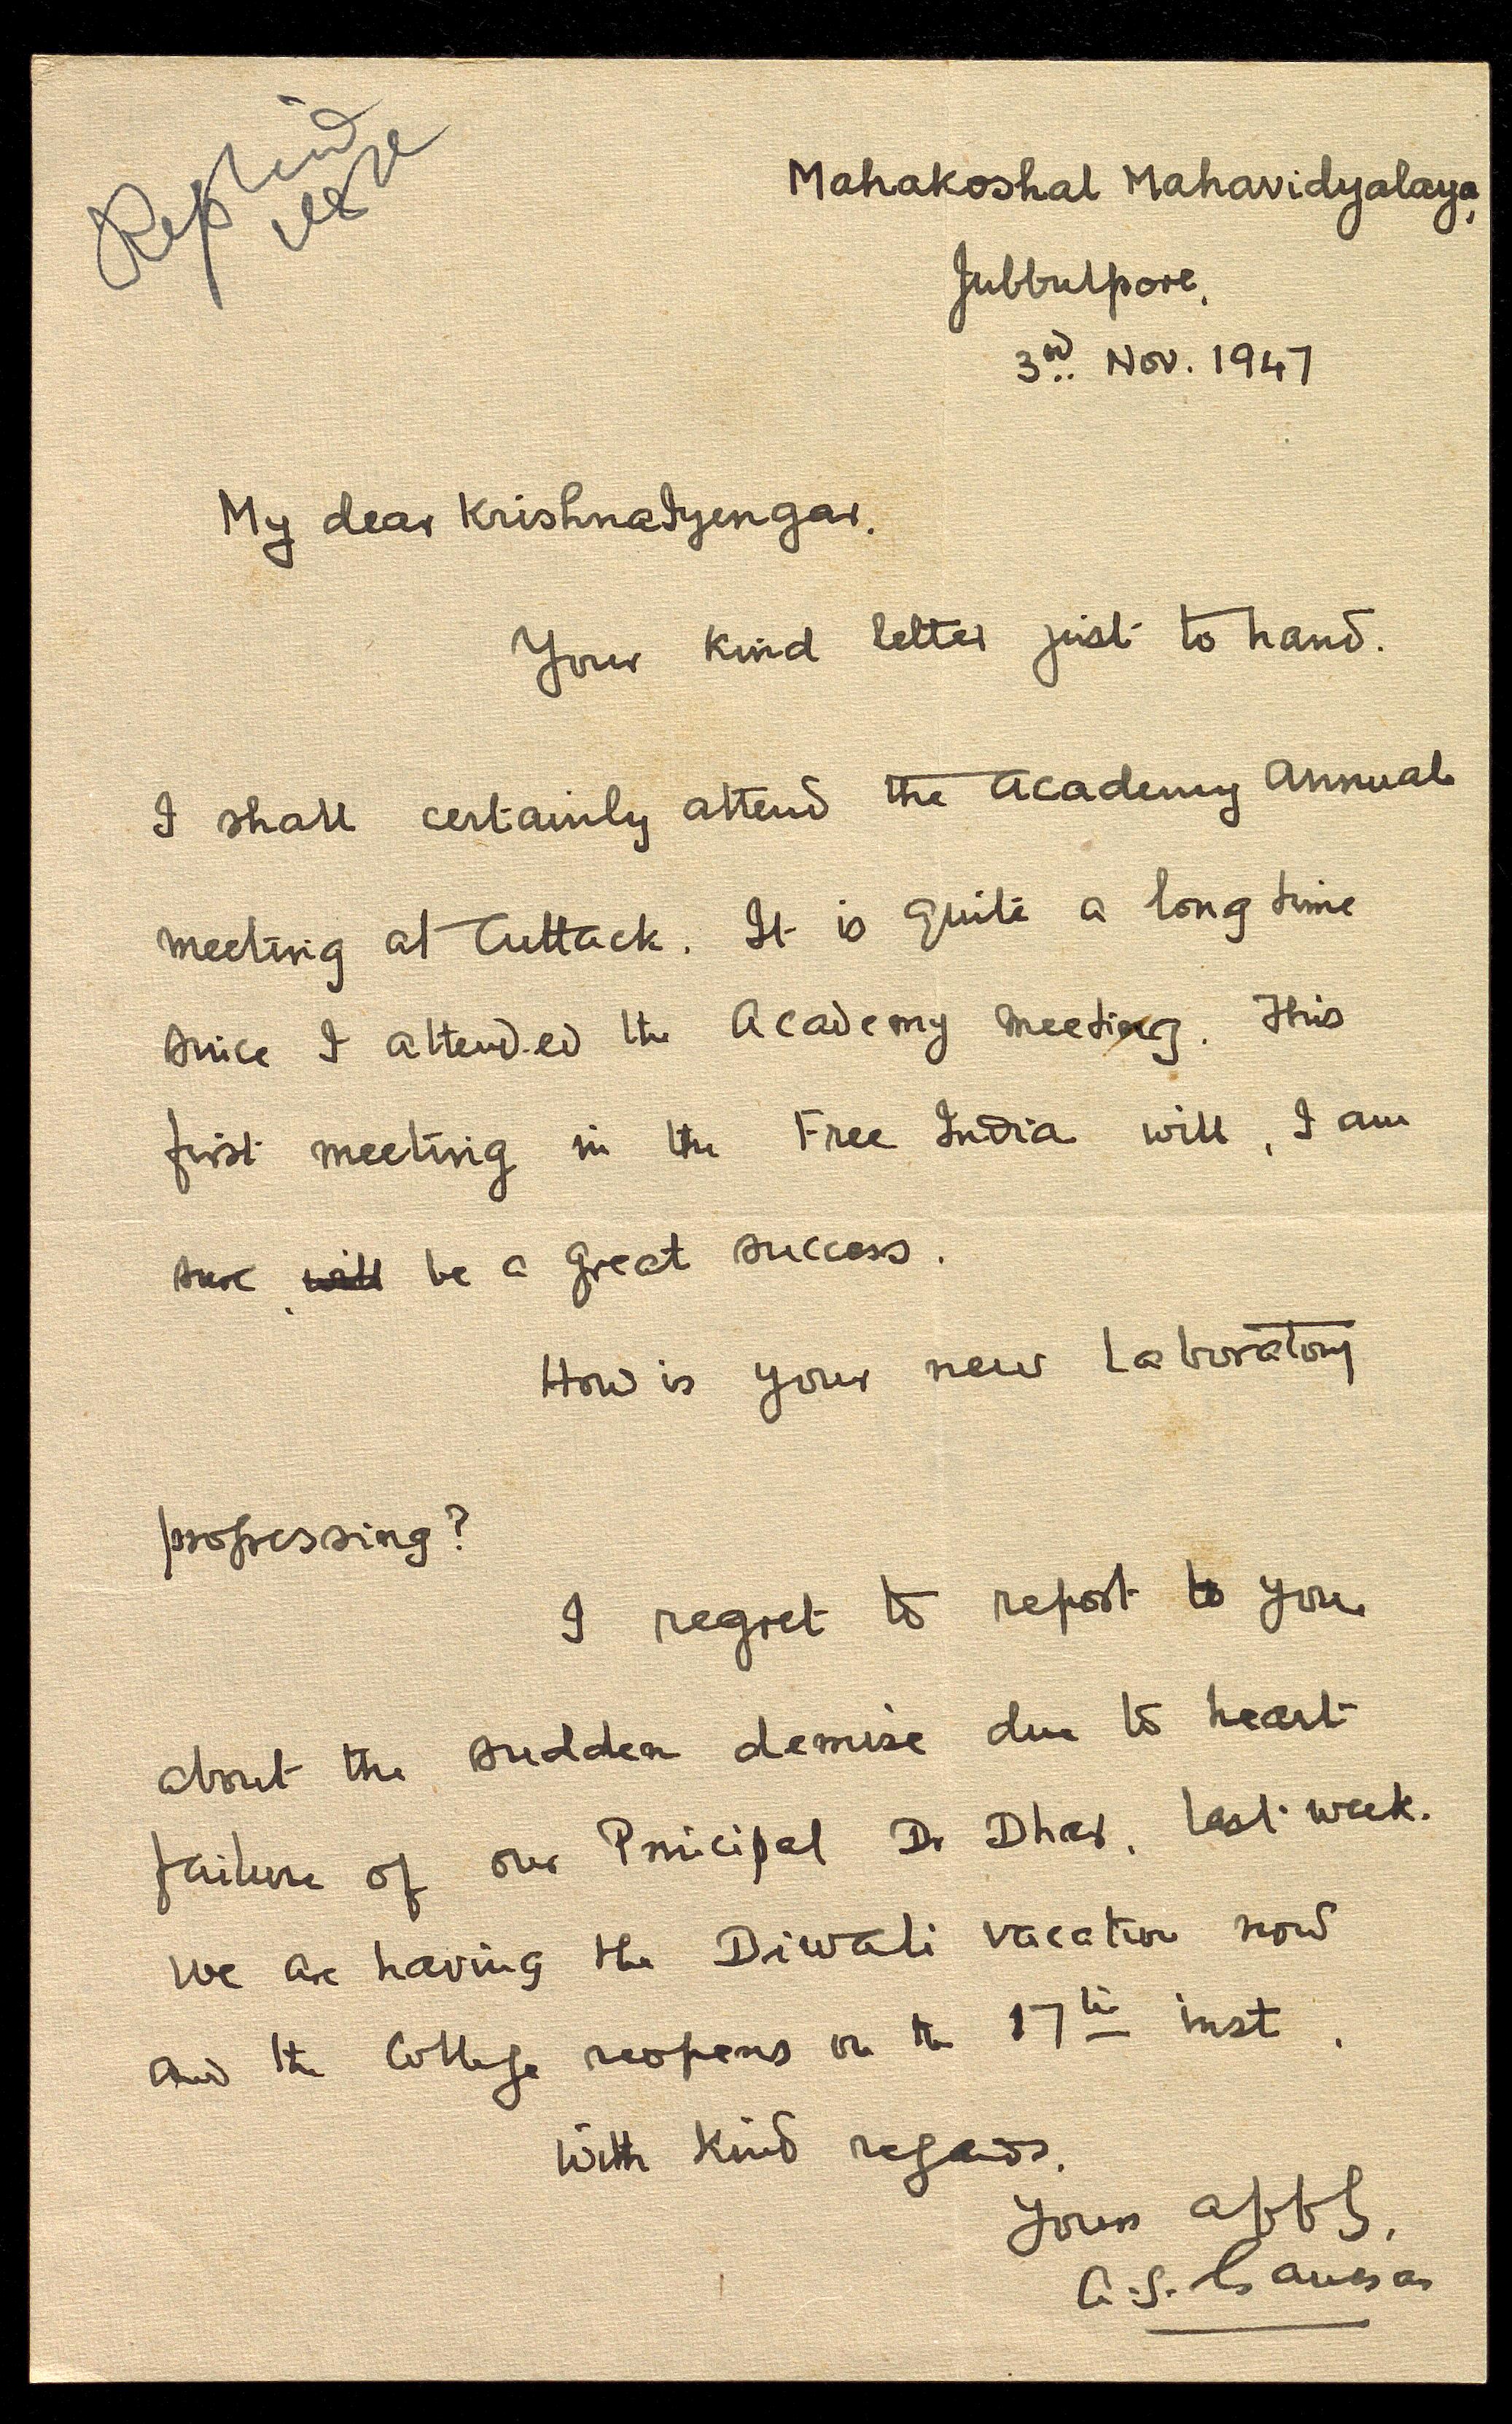 Replied
Mahakoshal Mahavidyalaya,
Jubbulpore.
3rd Nov. 1947
My dear KrishnaIyengar.
Your kind letter just to hand.
I shall certainly attend the Academy Annual
meeting at Cuttack. It is quite a long time
since I attended the Academy meeting. This
first meeting in the Free India will, I am
sure, will be a great success.
How is your new Laboratory
progressing?
I regret to report to you
about the sudden demise due to heart
failure of our Principal Dr Dhar, last week.
We are having the Diwali vacation now
and the College reopens on the 17th inst.
With kind regards.
Yours affly,
A.S. Ganesan